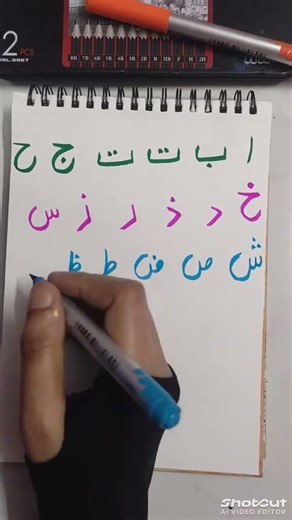 2 PCS
8B 7B 6B 5B 4B 3B 2B B HB F H 2H
ا ب ت ت ج ح
خ د ذ ر ز س
ش ص ض ط ظ
ShotCut
AI VIDEO EDITOR